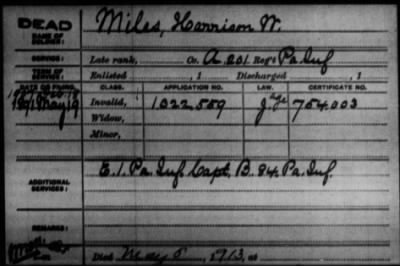 DEAD
NAME OF SOLDIER: Miles, Harrison W.
SERVICE: Late rank, Co. A, 201 Reg't Pa. Inf
TERM OF SERVICE: Enlisted , 1 Discharged , 1
DATE OF FILING. CLASS. APPLICATION NO. LAW. CERTIFICATE NO.
1891 May 19 Invalid, 1022,559 754.003
Widow,
Minor,
ADDITIONAL SERVICES: E. 1. Pa. Inf. Capt. B. 84. Pa. Inf.
REMARKS:
Died May 5, 1913, at